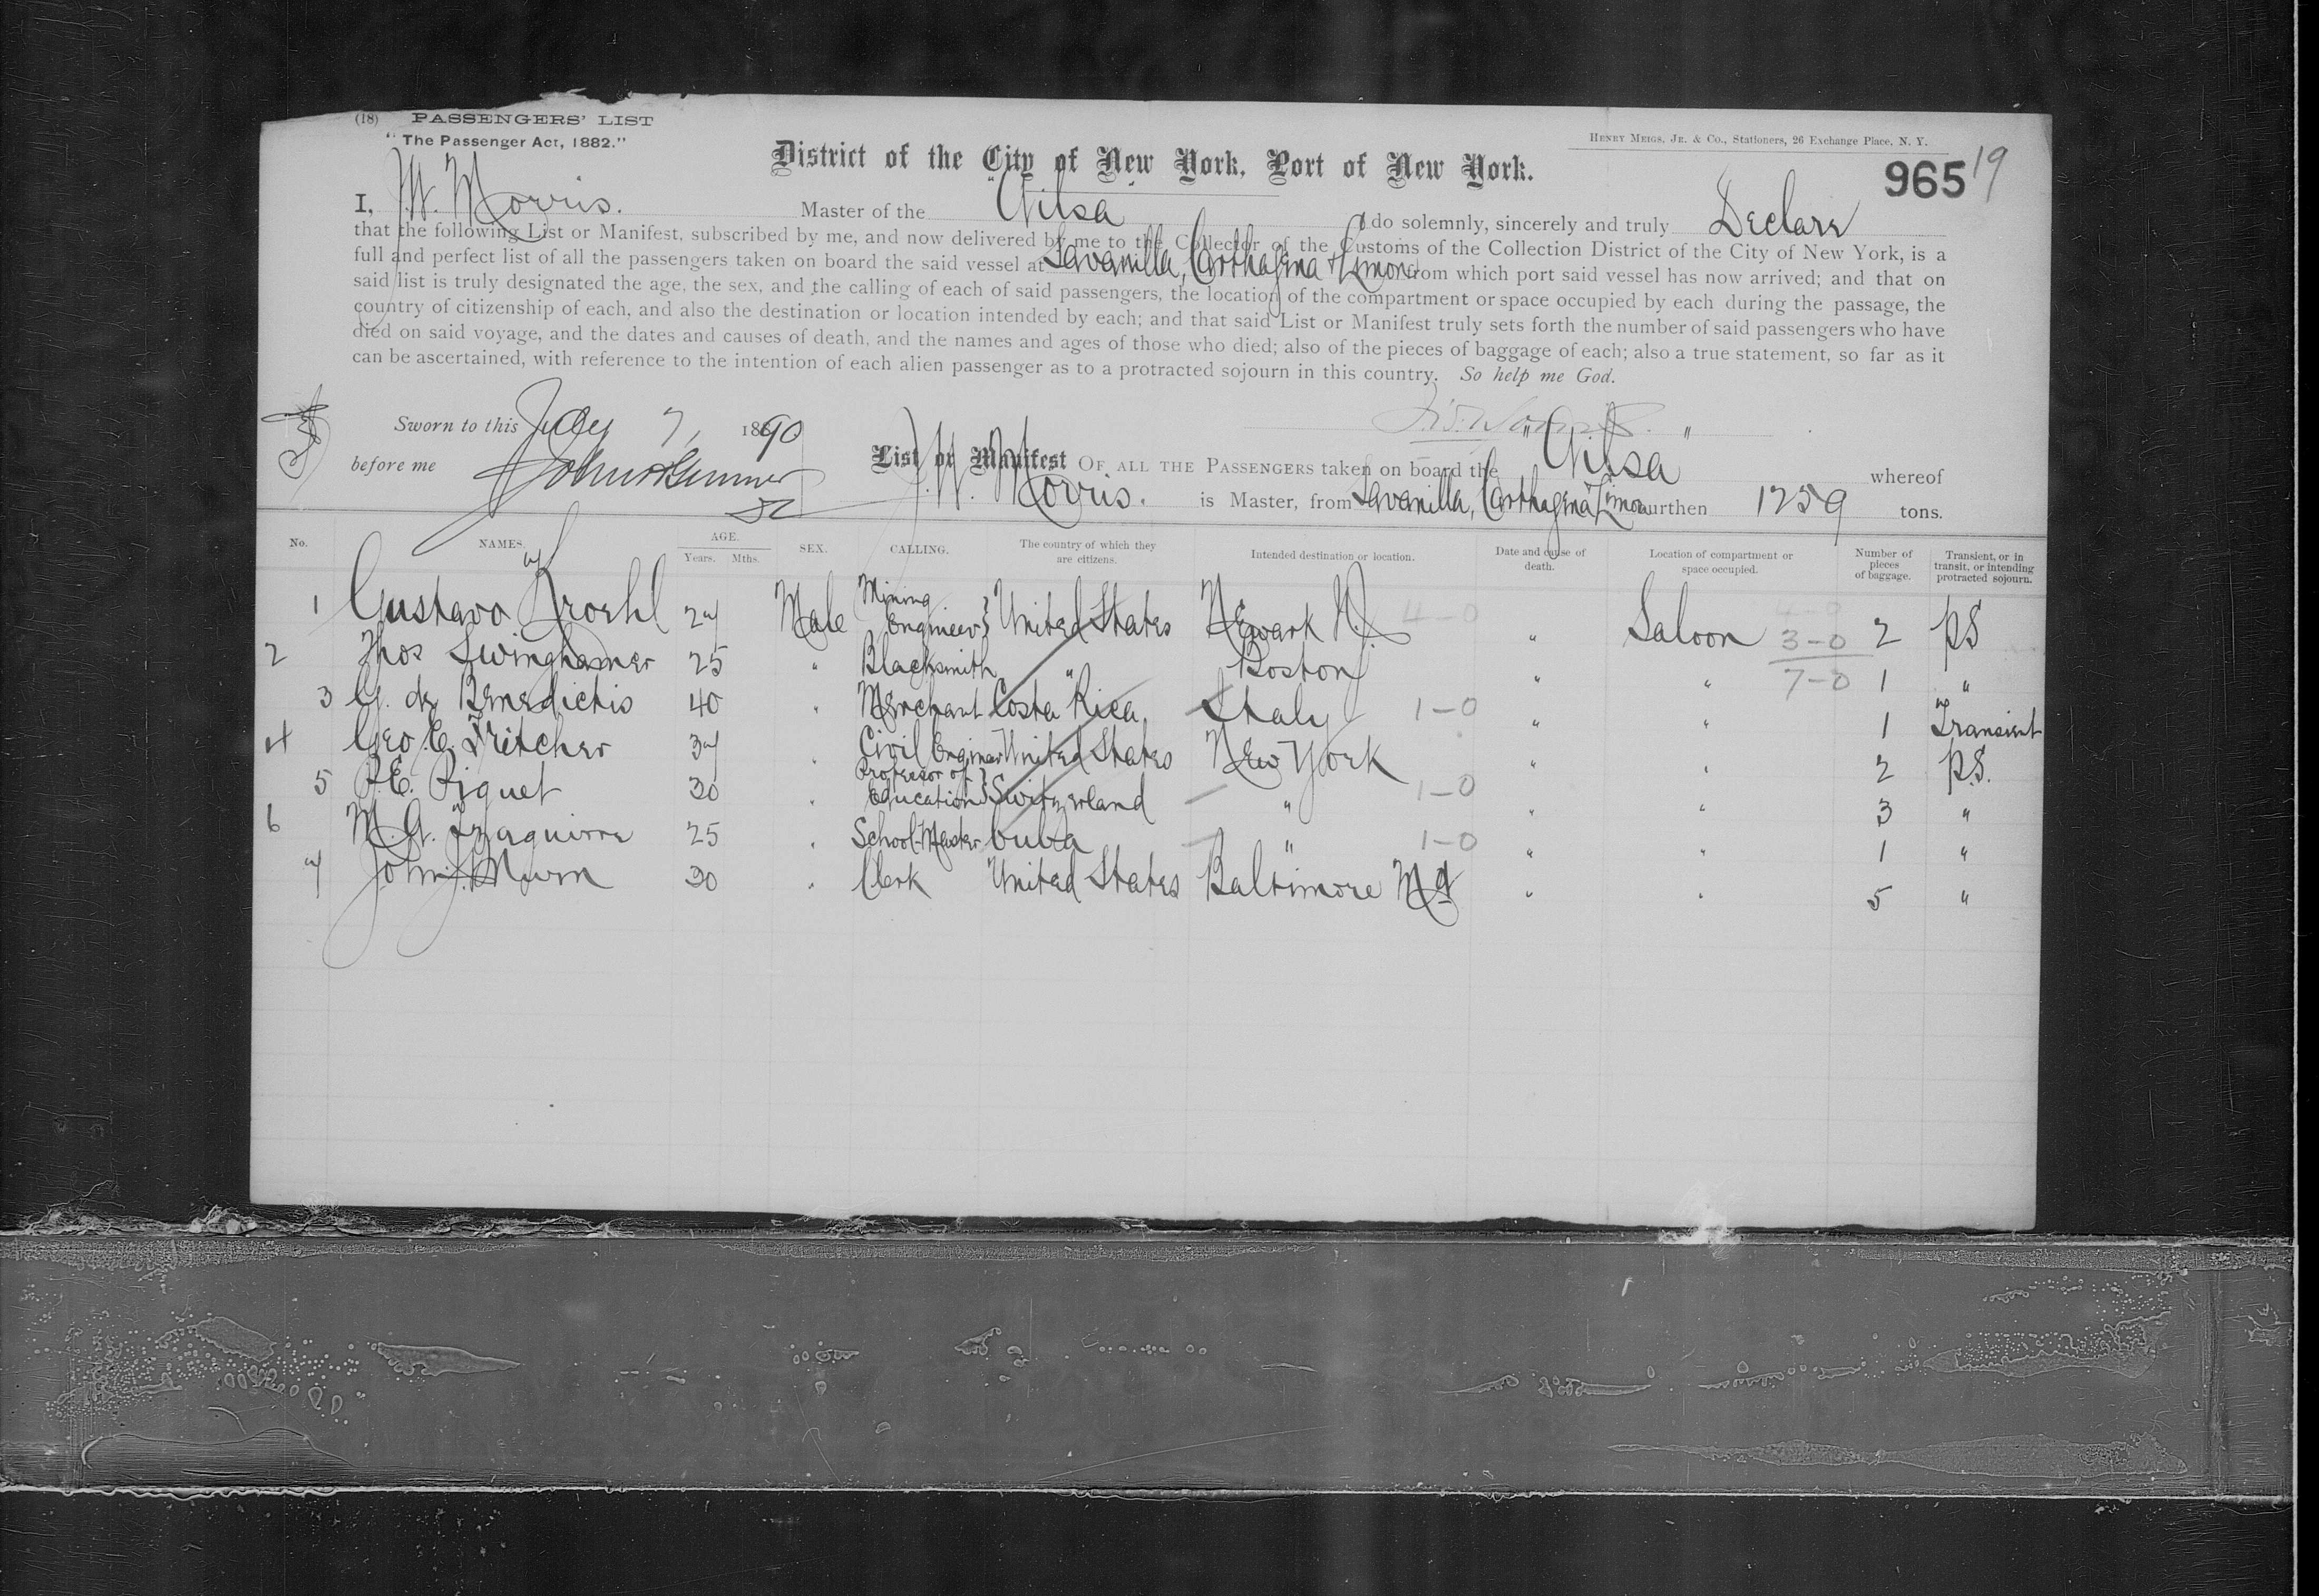 (18) PASSENGERS' LIST
"The Passenger Act, 1882."
HENRY MEIGS, JR. & CO., Stationers, 26 Exchange Place, N. Y.
District of the City of New York, Port of New York.
965 19
I, J.W. Morris. Master of the "Ailsa" do solemnly, sincerely and truly Declare
that the following List or Manifest, subscribed by me, and now delivered by me to the Collector of the Customs of the Collection District of the City of New York, is a
full and perfect list of all the passengers taken on board the said vessel at Savanilla, Carthagena & Limon from which port said vessel has now arrived; and that on
said list is truly designated the age, the sex, and the calling of each of said passengers, the location of the compartment or space occupied by each during the passage, the
country of citizenship of each, and also the destination or location intended by each; and that said List or Manifest truly sets forth the number of said passengers who have
died on said voyage, and the dates and causes of death, and the names and ages of those who died; also of the pieces of baggage of each; also a true statement, so far as it
can be ascertained, with reference to the intention of each alien passenger as to a protracted sojourn in this country. So help me God.
Sworn to this July 7, 1890 J.W. Morris.
before me
List or Manifest OF ALL THE PASSENGERS taken on board the "Ailsa" whereof
J.W. Morris. is Master, from Savanilla, Carthagena Limon burthen 1259 tons.
No. NAMES. AGE. Years. Mths. SEX. CALLING. The country of which they are citizens. Intended destination or location. Date and cause of death. Location of compartment or space occupied. Number of pieces of baggage. Transient, or in transit, or intending protracted sojourn.
1 Gustavo Kroehl 27 Male Mining Engineer } United States Newark N.J. 4-0 " Saloon 3-0 2 P.S
2 Thos Swinghamer 25 " Blacksmith " Boston " " 7-0 1 "
3 G. de Benedictis 40 " Merchant Costa Rica Italy 1-0 " " 1 Transient
4 Geo. E. Fritcher 37 " Civil Engineer United States New York " " 2 P.S.
5 P.E. Piguet 30 " Professor of Education } Switzerland " 1-0 " " 3 "
6 M. A. Izaguirre 25 " School-Master Cuba " 1-0 " " 1 "
7 John J. Murn 30 " Clerk United States Baltimore Md " " 5 "